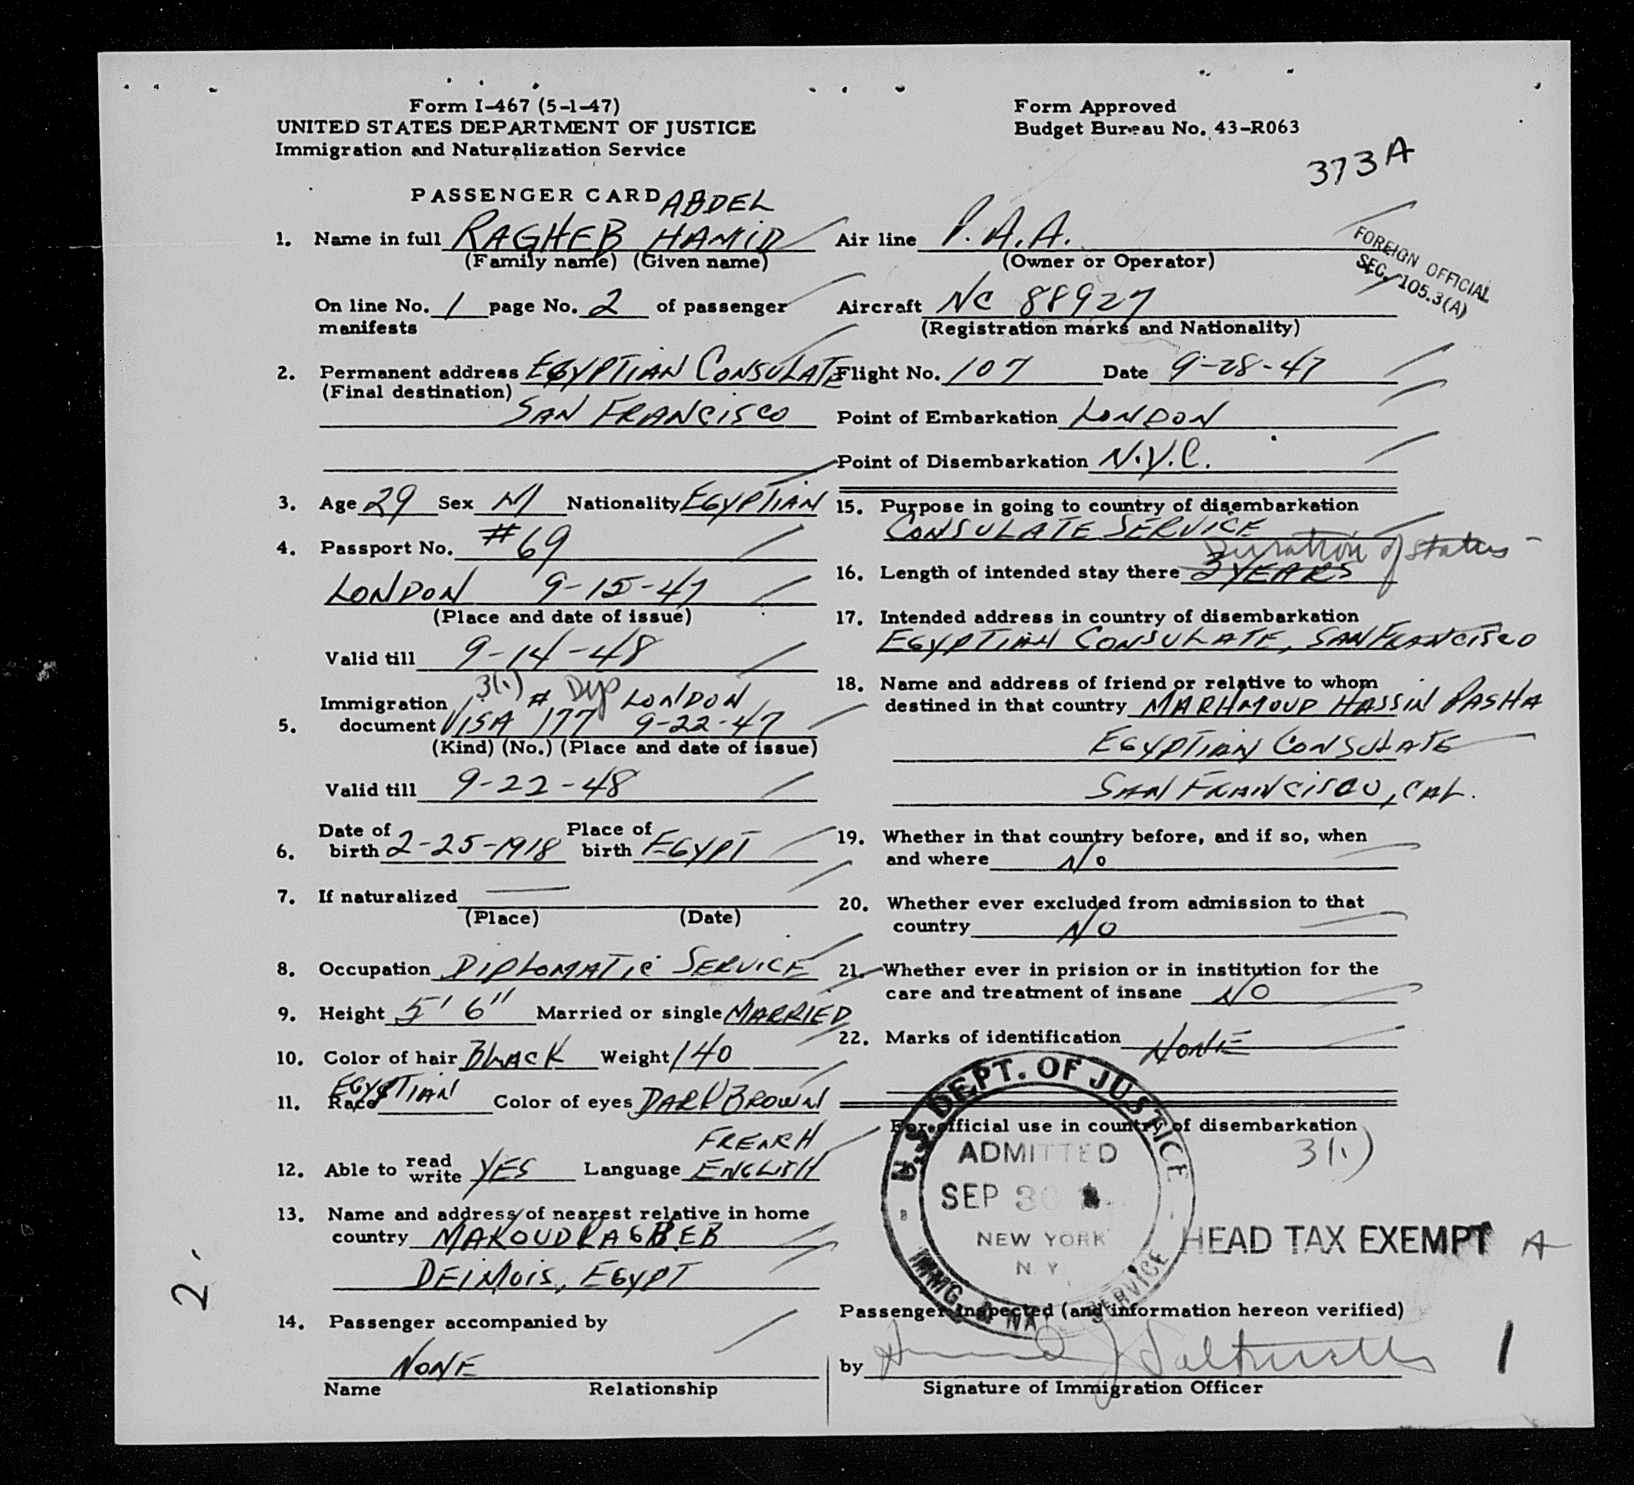 Form I-467 (5-1-47)
UNITED STATES DEPARTMENT OF JUSTICE
Immigration and Naturalization Service
Form Approved
Budget Bureau No. 43-R063
373A
PASSENGER CARD ABDEL
1. Name in full RAGHEB HAMID
(Family name) (Given name)
On line No. 1 page No. 2 of passenger
manifests
2. Permanent address EGYPTIAN CONSULATE
(Final destination)
SAN FRANCISCO
3. Age 29 Sex M Nationality EGYPTIAN
4. Passport No. #69
LONDON 9-15-47
(Place and date of issue)
Valid till 9-14-48
3(1) # Dip LONDON
Immigration
5. document VISA 177 9-22-47
(Kind) (No.) (Place and date of issue)
Valid till 9-22-48
Date of Place of
6. birth 2-25-1918 birth EGYPT
7. If naturalized —
(Place) (Date)
8. Occupation DIPLOMATIC SERVICE
9. Height 5' 6" Married or single MARRIED
10. Color of hair BLACK Weight 140
EGYPTIAN
11. Race Color of eyes DARK BROWN
FRENCH
12. Able to read write YES Language ENGLISH
13. Name and address of nearest relative in home
country MAKOUD RAGBEB
DEIMOIS, EGYPT
14. Passenger accompanied by
NONE
Name Relationship
2
Air line P.A.A.
(Owner or Operator)
FOREIGN OFFICIAL
SEC. 105.3(A)
Aircraft NC 88927
(Registration marks and Nationality)
Flight No. 107 Date 9-28-47
Point of Embarkation LONDON
Point of Disembarkation N.Y.C.
15. Purpose in going to country of disembarkation
CONSULATE SERVICE
Duration of status
16. Length of intended stay there 3 YEARS
17. Intended address in country of disembarkation
EGYPTIAN CONSULATE, SAN FRANCISCO
18. Name and address of friend or relative to whom
destined in that country MARHMOUD HASSIN PASHA
EGYPTIAN CONSULATE
SAN FRANCISCO, CAL.
19. Whether in that country before, and if so, when
and where No
20. Whether ever excluded from admission to that
country NO
21. Whether ever in prision or in institution for the
care and treatment of insane NO
22. Marks of identification NONE
For official use in country of disembarkation
3(1)
U.S. DEPT. OF JUSTICE
ADMITTED
SEP 30
NEW YORK
N.Y.
IMMG. & NAT. SERVICE
HEAD TAX EXEMPT A
Passenger Inspected (and information hereon verified)
by
Signature of Immigration Officer
1